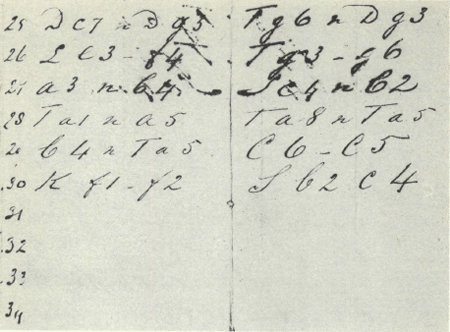 25 D c7 n D g3 T g6 n D g3
26 L c3 - f4 T g3 - g6
27 a3 n b4 S c4 n b2
28 T a1 n a5 T a8 n T a5
29 b4 n T a5 C 6 - C 5
30 K f1 - f2 S b2 c4
31
32
33
34